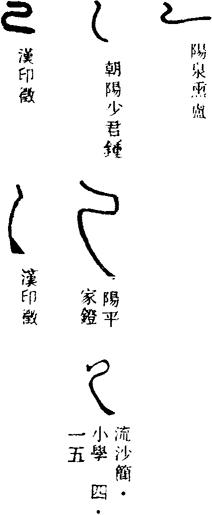 陽泉熏盧
朝陽少君鍾
漢印徵
陽平
家鐙
漢印徵
流沙簡．
小學 四．
一五